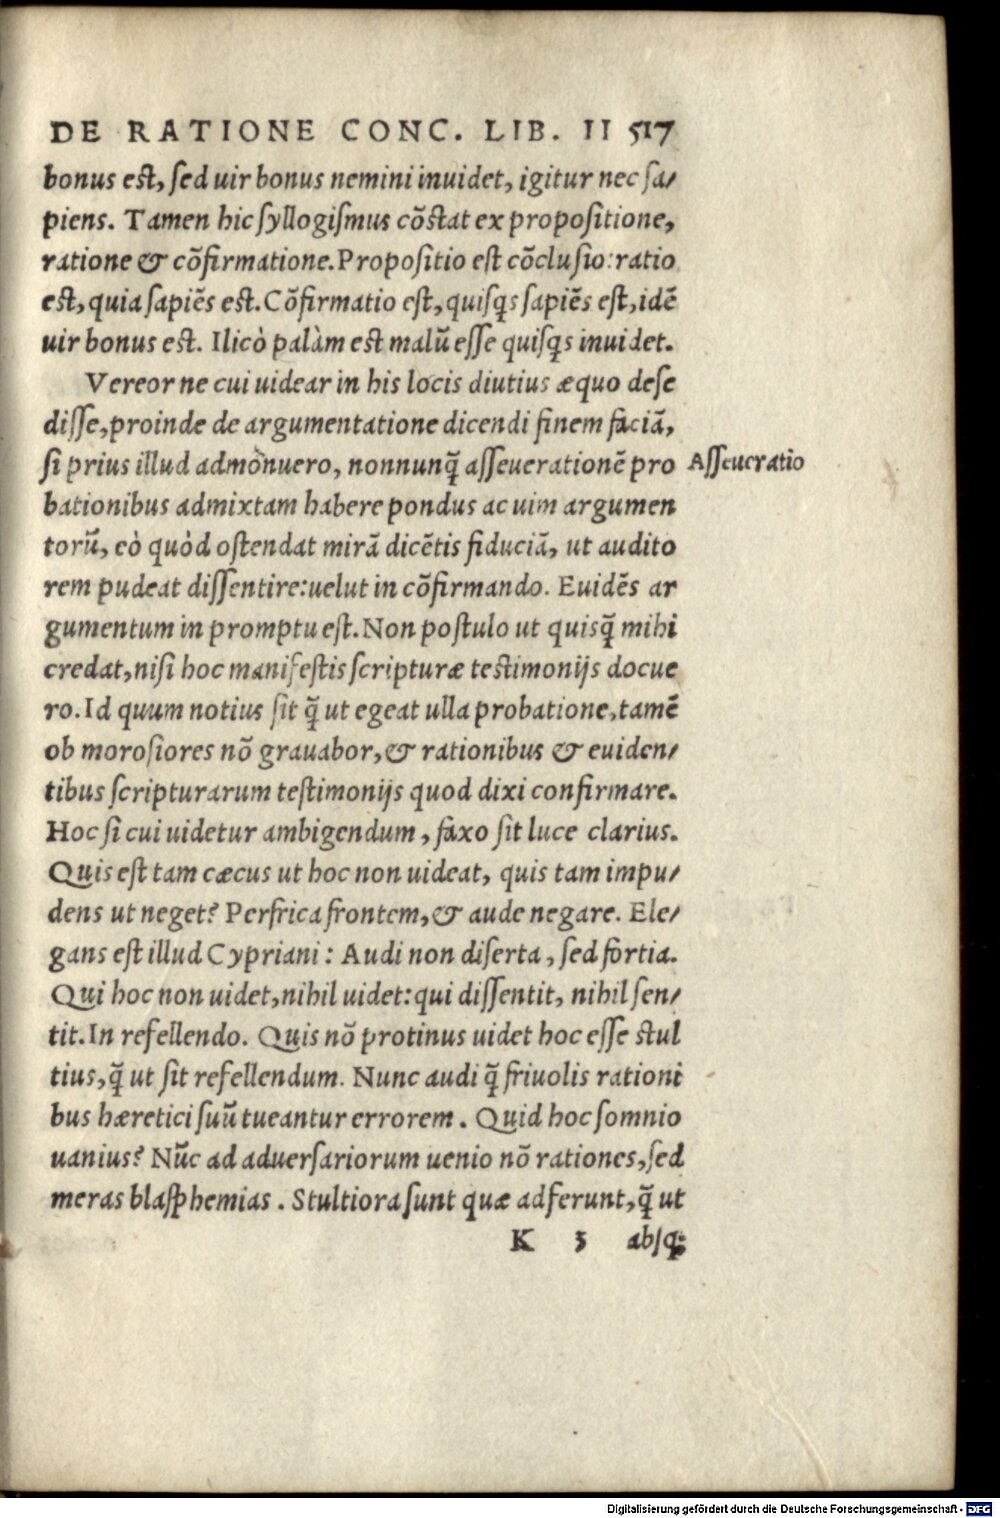 DE RATIONE CONC. LIB. II 517
bonus est, ſed uir bonus nemini inuidet, igitur nec ſa/
piens. Tamen hic ſyllogiſmus cõſtat ex propoſitione,
ratione & cõfirmatione. Propoſitio eſt cõcluſio: ratio
eſt, quia ſapiẽs eſt. Cõfirmatio eſt, quiſq̃s ſapiẽs eſt, idẽ
uir bonus eſt. Ilicò palàm eſt malũ eſſe quiſq̃s inuidet.
Vereor ne cui uidear in his locis diutius æquo deſe
diſſe, proinde de argumentatione dicendi finem faciã,
ſi prius illud admonuero, nonnunq̃ aſſeuerationẽ pro
Aſſeueratio
bationibus admixtam habere pondus ac uim argumen
torũ, eò quòd oſtendat mirã dicẽtis fiduciã, ut audito
rem pudeat diſſentire: uelut in cõfirmando. Euidẽs ar
gumentum in promptu eſt. Non poſtulo ut quisq̃ mihi
credat, niſi hoc manifeſtis ſcripturæ teſtimonijs docue
ro. Id quum notius ſit q̃ ut egeat ulla probatione, tamẽ
ob moroſiores nõ grauabor, & rationibus & euiden/
tibus ſcripturarum teſtimonijs quod dixi confirmare.
Hoc ſi cui uidetur ambigendum, faxo ſit luce clarius.
Quis eſt tam cæcus ut hoc non uideat, quis tam impu/
dens ut neget? Perfrica frontem, & aude negare. Ele/
gans eſt illud Cypriani: Audi non diſerta, ſed fortia.
Qui hoc non uidet, nihil uidet: qui diſſentit, nihil ſen/
tit. In refellendo. Quis nõ protinus uidet hoc eſſe ſtul
tius, q̃ ut ſit refellendum. Nunc audi q̃ friuolis rationi
bus hæretici ſuũ tueantur errorem. Quid hoc ſomnio
uanius? Nũc ad aduerſariorum uenio nõ rationes, ſed
meras blaſphemias. Stultiora ſunt quæ adferunt, q̃ ut
K 3 abſq;
Digitalisierung gefördert durch die Deutsche Forschungsgemeinschaft - DFG